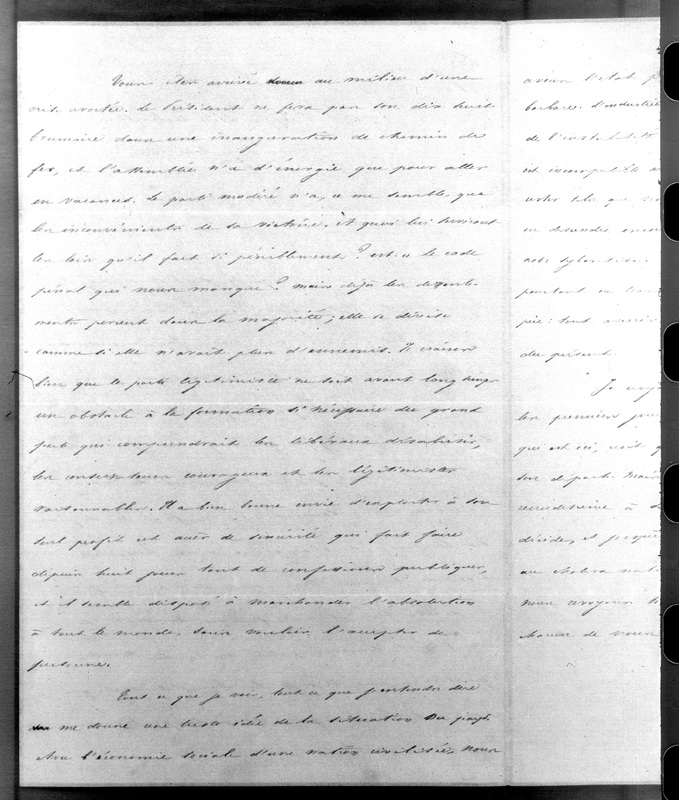 Vous êtes arrivé au milieu d'une
crise avortée. Le Président ne fera pas son dix huit
brumaire dans une inauguration de chemin de
fer, et l'assemblée n'a d'énergie que pour aller
en vacances. Le parti modéré n'a, ce me semble, que
les inconvénients de sa victoire. Et quoi lui servirait
les lois qu'il fait si péniblement ? est-ce le code
pénal qui nous manque ? mais déjà les dissenti-
ments percent dans la majorité; elle se divise
comme si elle n'avait plus d'ennemis. Je crains
bien que le parti légitimiste ne soit avant longtemps
un obstacle à la formation si nécessaire du grand
parti qui comprendrait les libéraux désabusés,
les conservateurs courageux et les légitimistes
raisonnables. Il a bien bonne envie d'exploiter à son
seul profit cet accès de sincérité qui fait faire
depuis huit jours tant de confessions publiques,
et il semble disposé à marchander l'absolution
à tout le monde, sans vouloir l'accepter de
personne.
Tout ce que je vois, tout ce que j'entends dire
me donne une triste idée de la situation du pays.
Avec l'économie sociale d'une nation civilisée, nous
avions l'état
barbares. d'industrie
de l'instabilité
est incompatible
en
nos
pourtant
tout
du présent.
Je
les premiers
qui est ici,
son départ.
à
divisés, et
au choléra
nous croyons